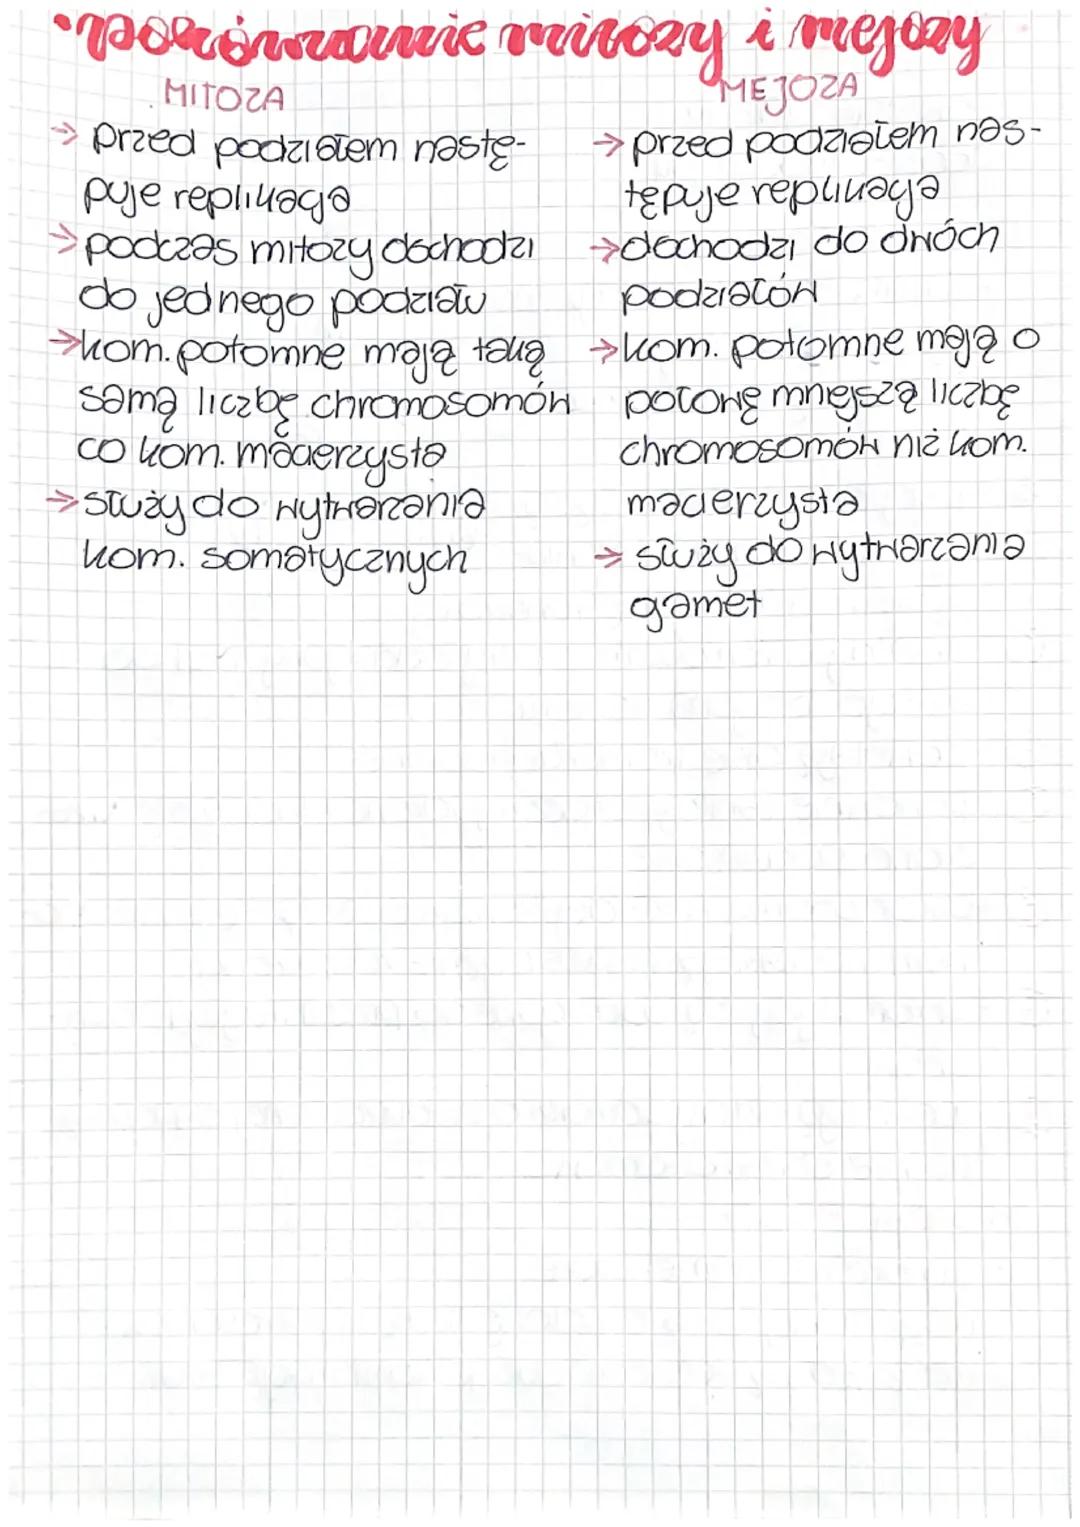 • Porównanie mitozy i mejozy
MITOZA
→ przed podziałem nastę-
puje replikacja
→ podczas mitozy dochodzi
do jednego podziału
→ kom. potomne mają taką
samą liczbę chromosomów
co kom. macierzysta
→ służy do wytwarzania
kom. somatycznych
MEJOZA
→ przed podziałem nas-
tępuje replikacja
→ dochodzi do dwóch
podziałów
→ kom. potomne mają o
połowę mnejszą liczbę
chromosomów niż kom.
macierzysta
→ służy do wytwarzania
gamet